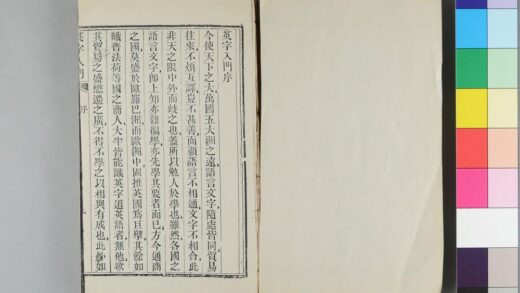 英字入門序
今使天下之大萬國五大洲之遠語言文字隨處皆同貿易
往來不煩互譯豈不甚善而顧語言不相通文字不相合此
非天之限中外而歧之也蓋所以勉人於學也雖然各國之
語言文字即上知亦難徧學亦先學其要者而已方今通商
之國莫盛於歐羅巴洲而歐洲中固推英國為巨擘其餘如
嘅普法荷等國之商人大半皆能識英字道英語者無他欲
其貿易之盛懋遷之廣不得不學之以相與有成也此餘如
英字入門 序